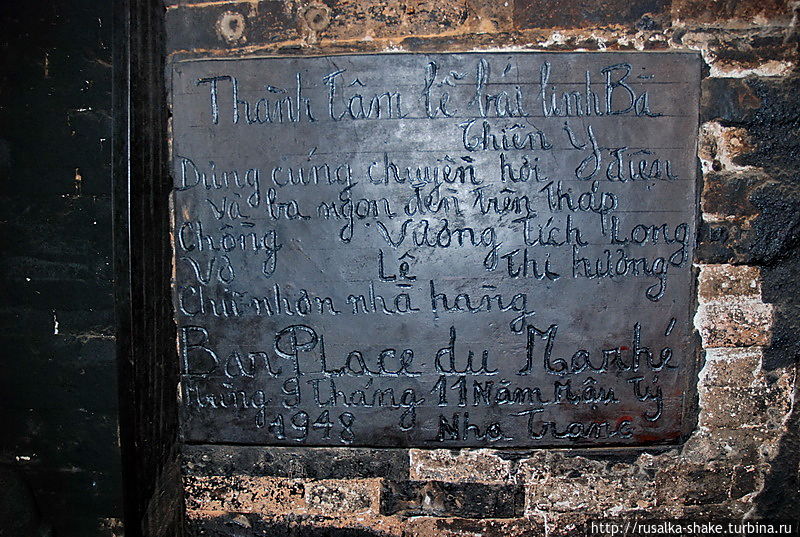 Thành tâm lễ bái linh Bà
Thiên Y
Dùng cúng chuyền hơi điện
và ba ngọn đèn trên tháp
Chồng Vương Tích Long
Vợ Lê Thị Hường
Chủ nhơn nhà hàng
Bar PLace du Marché
Mùng 9 Tháng 11 Năm Mậu Tý
1948 Nha Trang
http://rusalka-shake.turbina.ru